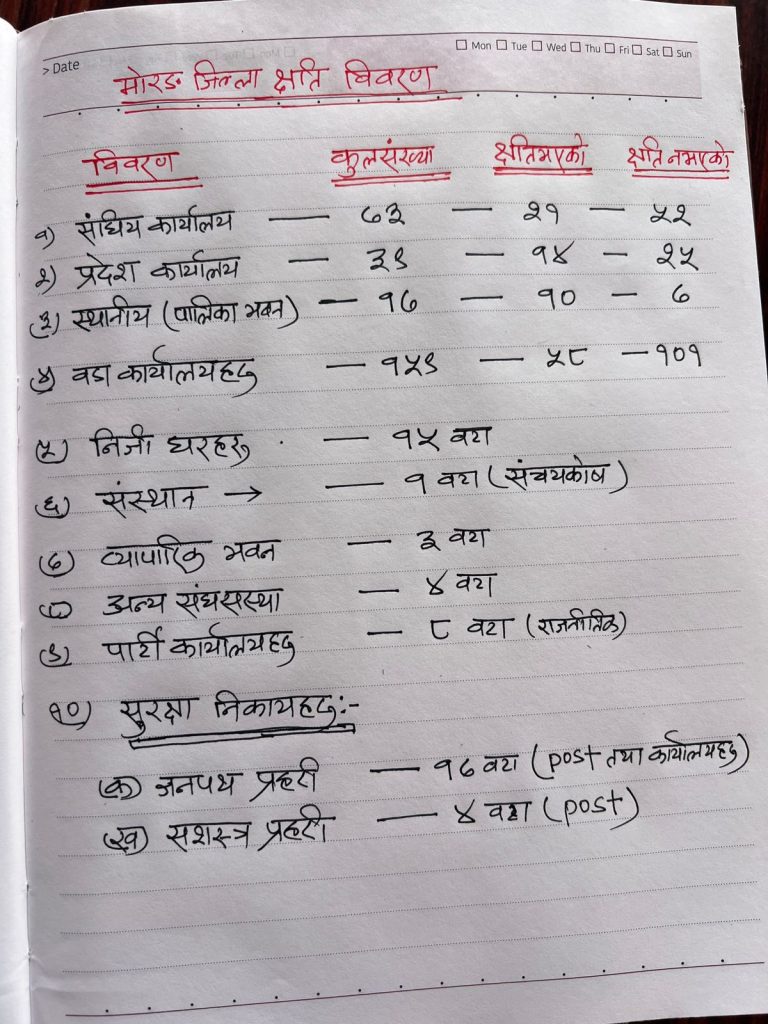 > Date
☐ Mon ☐ Tue ☐ Wed ☐ Thu ☐ Fri ☐ Sat ☐ Sun
मोरङ जिल्ला क्षति विवरण
विवरण कुलसंख्या क्षतिभएको क्षति नभएको
१) संघिय कार्यालय — ७३ — २१ — ५२
२) प्रदेश कार्यालय — ३९ — १४ — २५
(३) स्थानीय (पालिका भवन) — १७ — १० — ७
(४) वडा कार्यालयहरु — १५९ — ५८ — १०१
(५) निजी घरहरु — १५ वटा
(६) संस्थान → — १ वटा (संचयकोष)
(७) व्यापारिक भवन — ३ वटा
(८) अन्य संघसस्था — ४ वटा
(९) पार्टी कार्यालयहरु — ८ वटा (राजनीतिक)
१०) सुरक्षा निकायहरु:-
(क) जनपथ प्रहरी — १७ वटा (post तथा कार्यालयहरु)
(ख) सशस्त्र प्रहरी — ४ वटा (post)